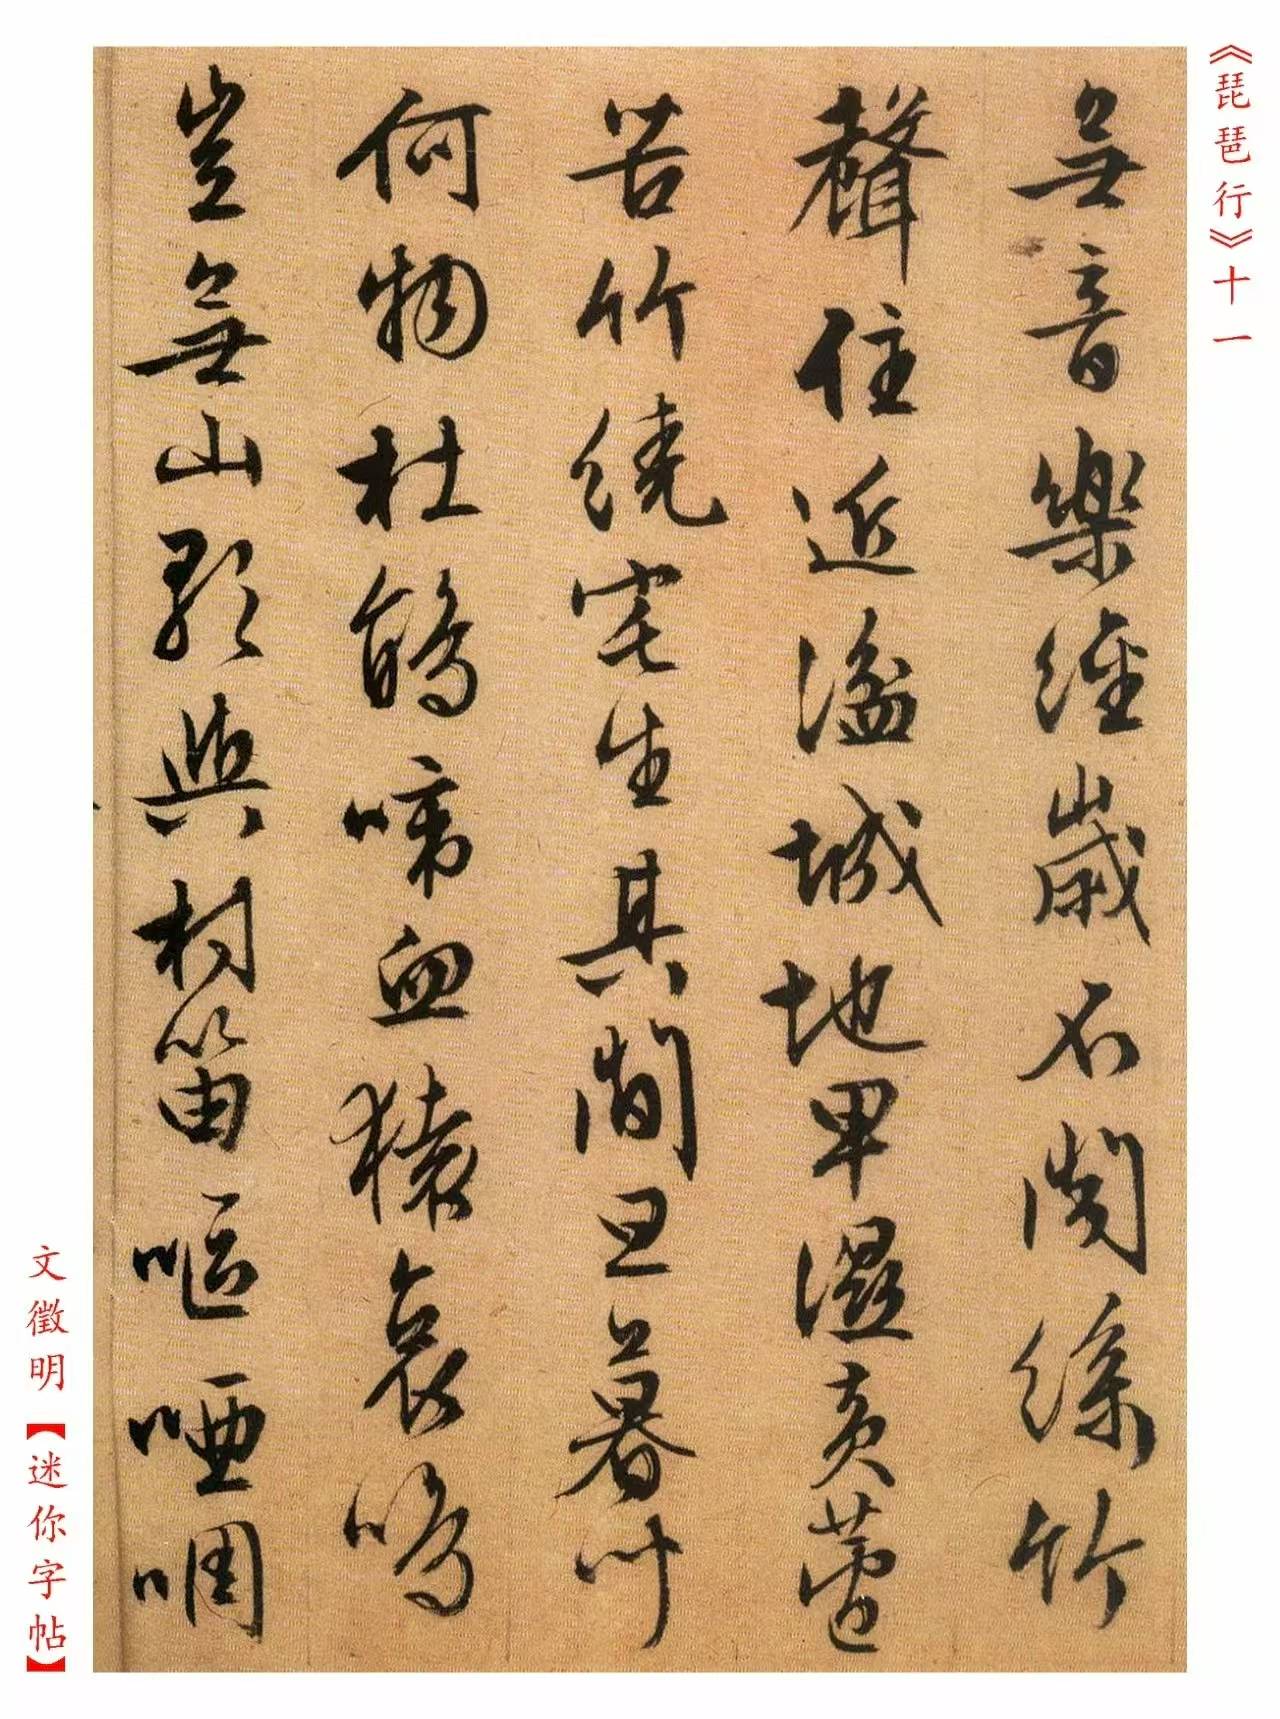 《琵琶行》十一
無音樂經歲不聞絲竹
聲住近湓城地卑濕黃蘆
苦竹繞宅生其間旦暮
何物杜鵑啼血猿哀鳴
豈無山歌與村笛嘔啞啁
文徵明【迷你字帖】